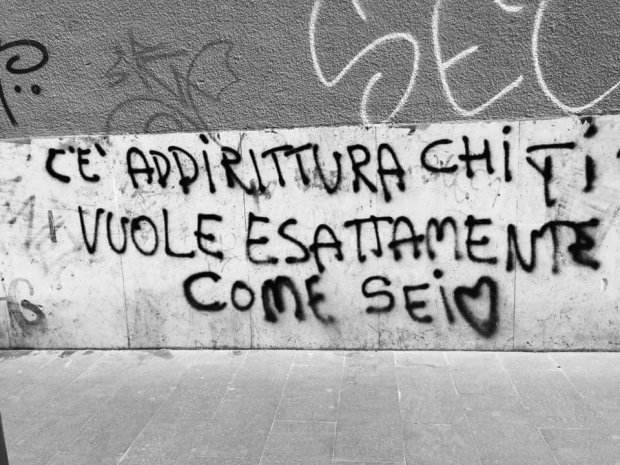 SEC
C'E' ADDiRITTURA CHi Ti
VUOLE ESATTAMENTE
COME SEi♥